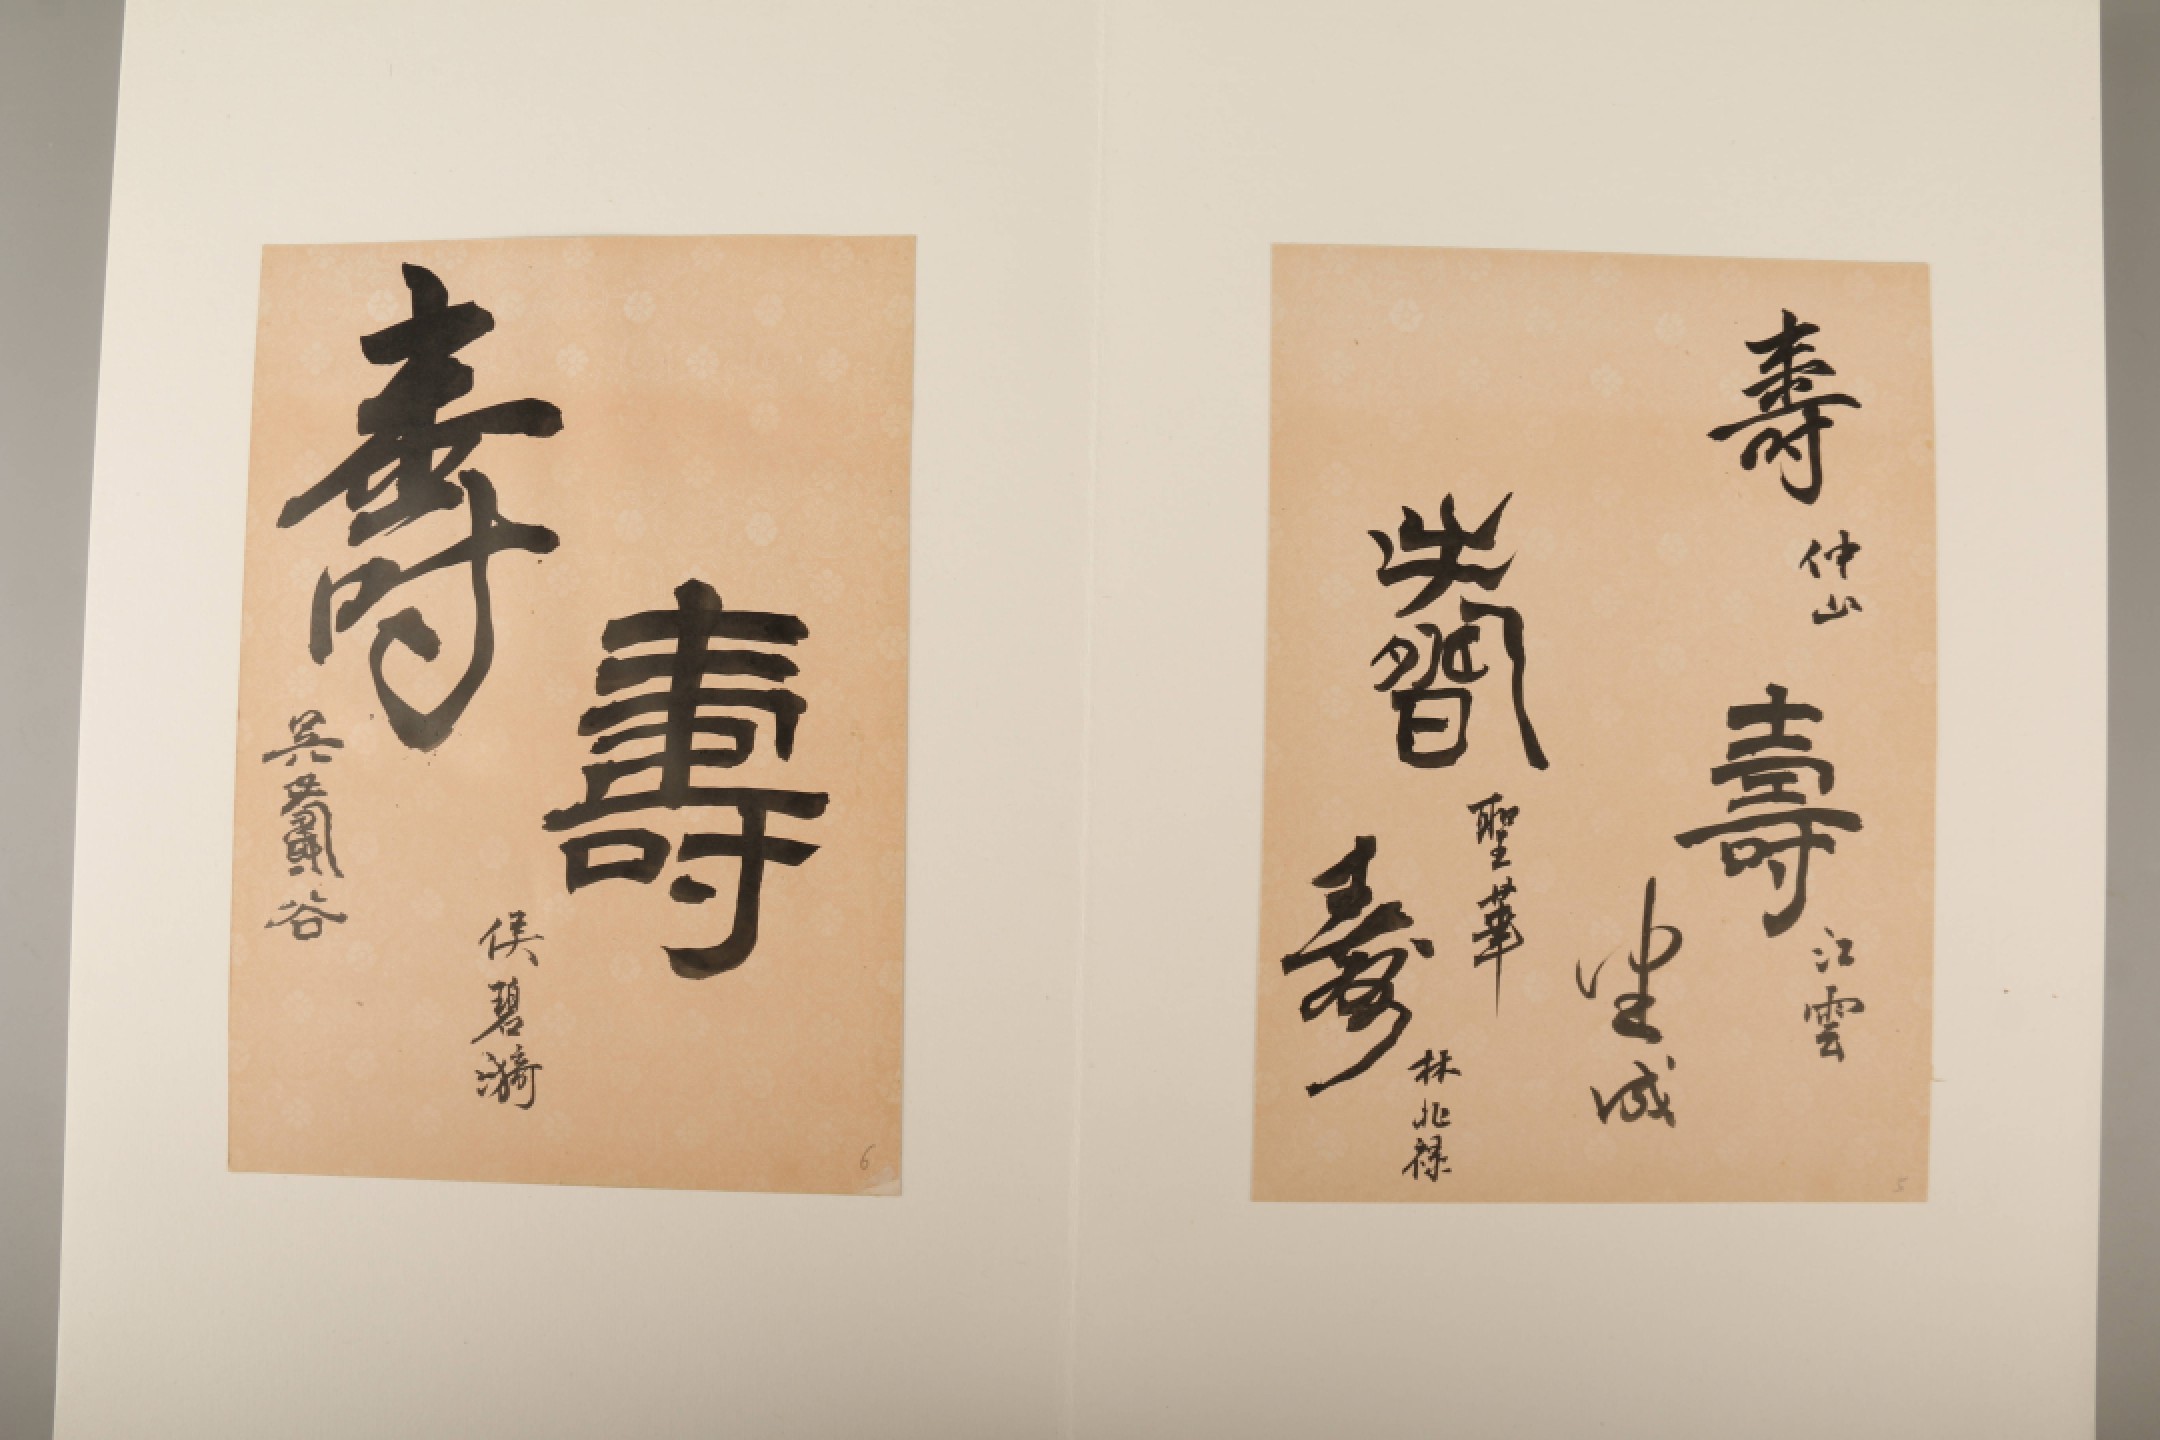 壽
仲山
壽
江雲
壽
聖華
壽
林兆祿
5
壽
侯碧漪
壽
吳谷
6